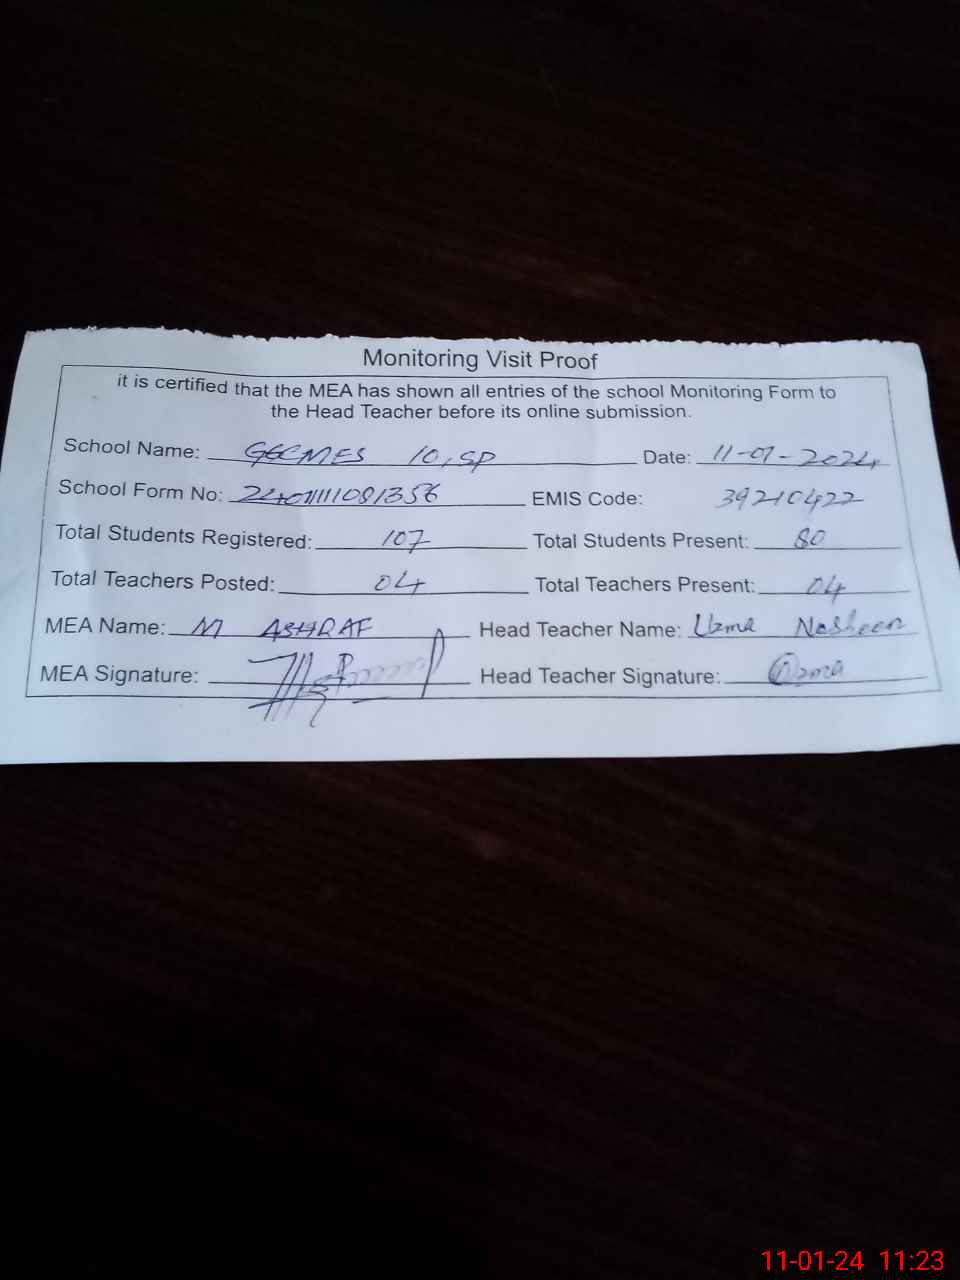 Monitoring Visit Proof
it is certified that the MEA has shown all entries of the school Monitoring Form to
the Head Teacher before its online submission.
School Name: GGCMES 10, SP Date: 11-01-2024
School Form No: EMIS Code: 39210422
Total Students Registered: 107 Total Students Present: 80
Total Teachers Posted: 04 Total Teachers Present: 04
MEA Name: M ASHRAF Head Teacher Name: Uzma Nosheen
MEA Signature: Head Teacher Signature: Uzma
11-01-24 11:23